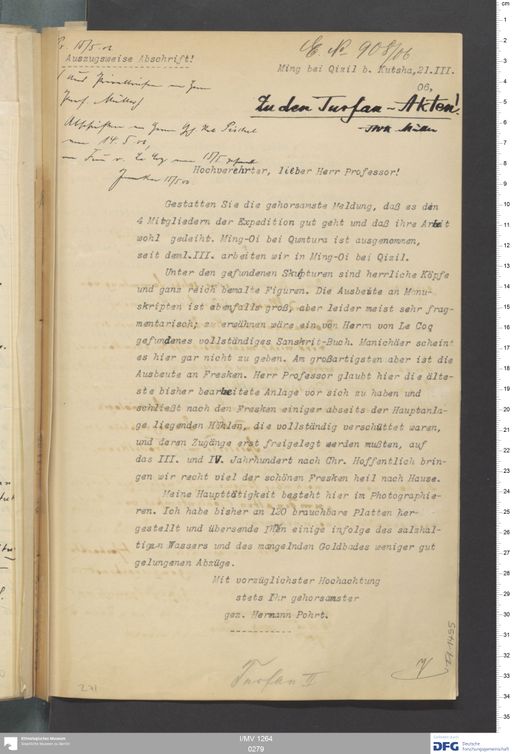 E. No 908/06
15/5. 06
Auszugsweise Abschrift!
Ming bei Qizil b. Kutsha, 21.III.
06,
Zu den Turfan-Akten!
Müller
14.5.06,
15/5
15/5 06
Hochverehrter, lieber Herr Professor!
Gestatten Sie die gehorsamste Meldung, daß es den
4 Mitgliedern der Expedition gut geht und daß ihre Arbeit
wohl gedeiht. Ming-Oi bei Qumtura ist ausgenommen,
seit dem1.III. arbeiten wir in Ming-Oi bei Qizil.
Unter den gefundenen Skulpturen sind herrliche Köpfe
und ganz reich bemalte Figuren. Die Ausbeute an Manu-
skripten ist ebenfalls groß, aber leider meist sehr frag-
mentarisch; zu erwähnen wäre ein von Herrn von Le Coq
gefundenes vollständiges Sanskrit-Buch. Manichäer scheint
es hier gar nicht zu geben. Am großartigsten aber ist die
Ausbeute an Fresken. Herr Professor glaubt hier die älte-
ste bisher bearbeitete Anlage vor sich zu haben und
schließt nach den Fresken einiger abseits der Hauptanla-
ge liegenden Höhlen, die vollständig verschüttet waren,
und deren Zugänge erst freigelegt werden mußten, auf
das III. und IV. Jahrhundert nach Chr. Hoffentlich brin-
gen wir recht viel der schönen Fresken heil nach Hause.
Meine Haupttätigkeit besteht hier im Photographie-
ren. Ich habe bisher an 120 brauchbare Platten her-
gestellt und übersende Ihnen einige infolge des salzhal-
tigen Wassers und des mangelnden Goldbades weniger gut
gelungenen Abzüge.
Mit vorzüglichster Hochachtung
stets Ihr gehorsamster
gez. Hermann Pohrt.
Turfan II
I/MV 1264
0279
Ethnologisches Museum
Staatliche Museen zu Berlin
DFG Deutsche
Forschungsgemeinschaft